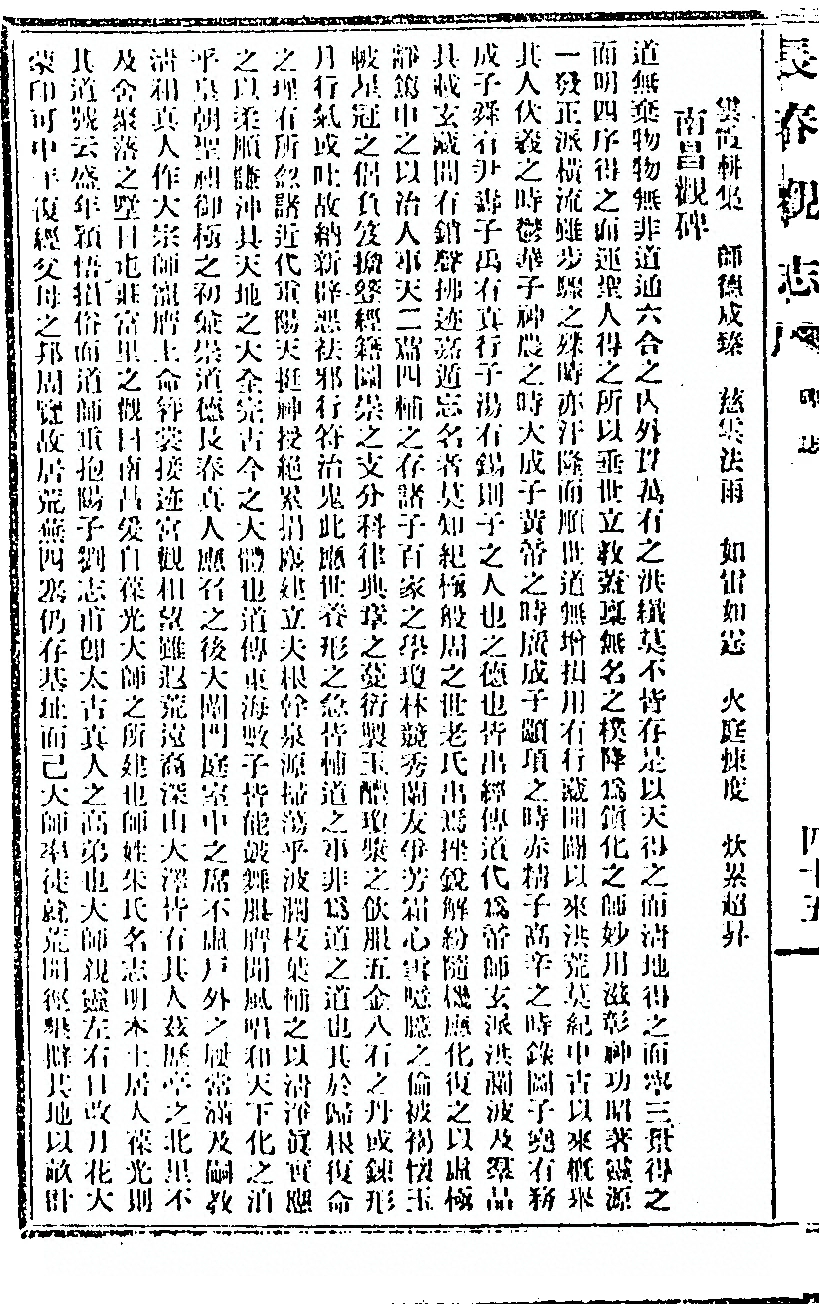 長春觀志
四十五
雲霞軿集　師德成臻　慈雲法雨　如雷如霆　火庭煉度　炊累超昇
南昌觀碑
道無棄物物無非道通六合之內外貫萬有之洪纖莫不皆存是以天得之而清地得之而寧三景得之
而明四序得之而運聖人得之所以垂世立教蓋稟無名之樸降為鎮化之師妙用滋彰神功昭著靈源
一發正派橫流雖步驟之殊時亦汙隆而順世道無增損用有行藏開闢以來洪荒莫紀中古以來概舉
其人伏羲之時鬱華子神農之時大成子黃帝之時廣成子顓頊之時赤精子高辛之時錄圖子堯有務
成子舜有尹壽子禹有真行子湯有錫則子之人也之德也皆出經傳道代為帝師玄派洪瀾波及羣品
具載玄藏間有銷聲拂迹嘉遁忘名者莫知紀極殷周之世老氏出焉挫銳解紛隨機應化復之以虛極
靜篤申之以治人事天二篇四輔之存諸子百家之學瓊林競秀蘭友爭芳霜心雪臆之倫被褐懷玉
帔星冠之侶負笈擔簦經籍圖崇之支分科律典章之蔓衍製玉醴瓊漿之飲服五金八石之丹或鍊形
月行氣或吐故納新辟惡祛邪行符治鬼此應世養形之急皆輔道之事非為道之道也其於歸根復命
之理有所忽諸近代重陽天挺神授絕累捐塵建立大根幹泉源掃蕩乎波瀾枝葉輔之以清淨真實應
之以柔順謙沖具天地之大全完古今之大體也道傳東海數子皆能鼓舞服膺聞風唱和天下化之洎
乎皇朝聖祖御極之初窮崇道德長春真人應召之後大闡門庭室中之席不虛戶外之屨常滿及嗣教
清和真人作大宗師寵膺上命簪裳接迹宮觀相望雖遐荒遠裔深山大澤皆有其人茲歷亭之北里不
及舍聚落之墅曰也莊富里之觀曰南昌爰自葆光大師之所建也師姓朱氏名志明本土居人葆光則
其道號云盛年穎悟損俗而道師重抱陽子劉志甫卽太古真人之高弟也大師親靈左右日改月花大
蒙印可中年復經父母之邦周覽故居荒蕪四塞仍存基址而已大師率徒就荒開徑舉隣其地以敵